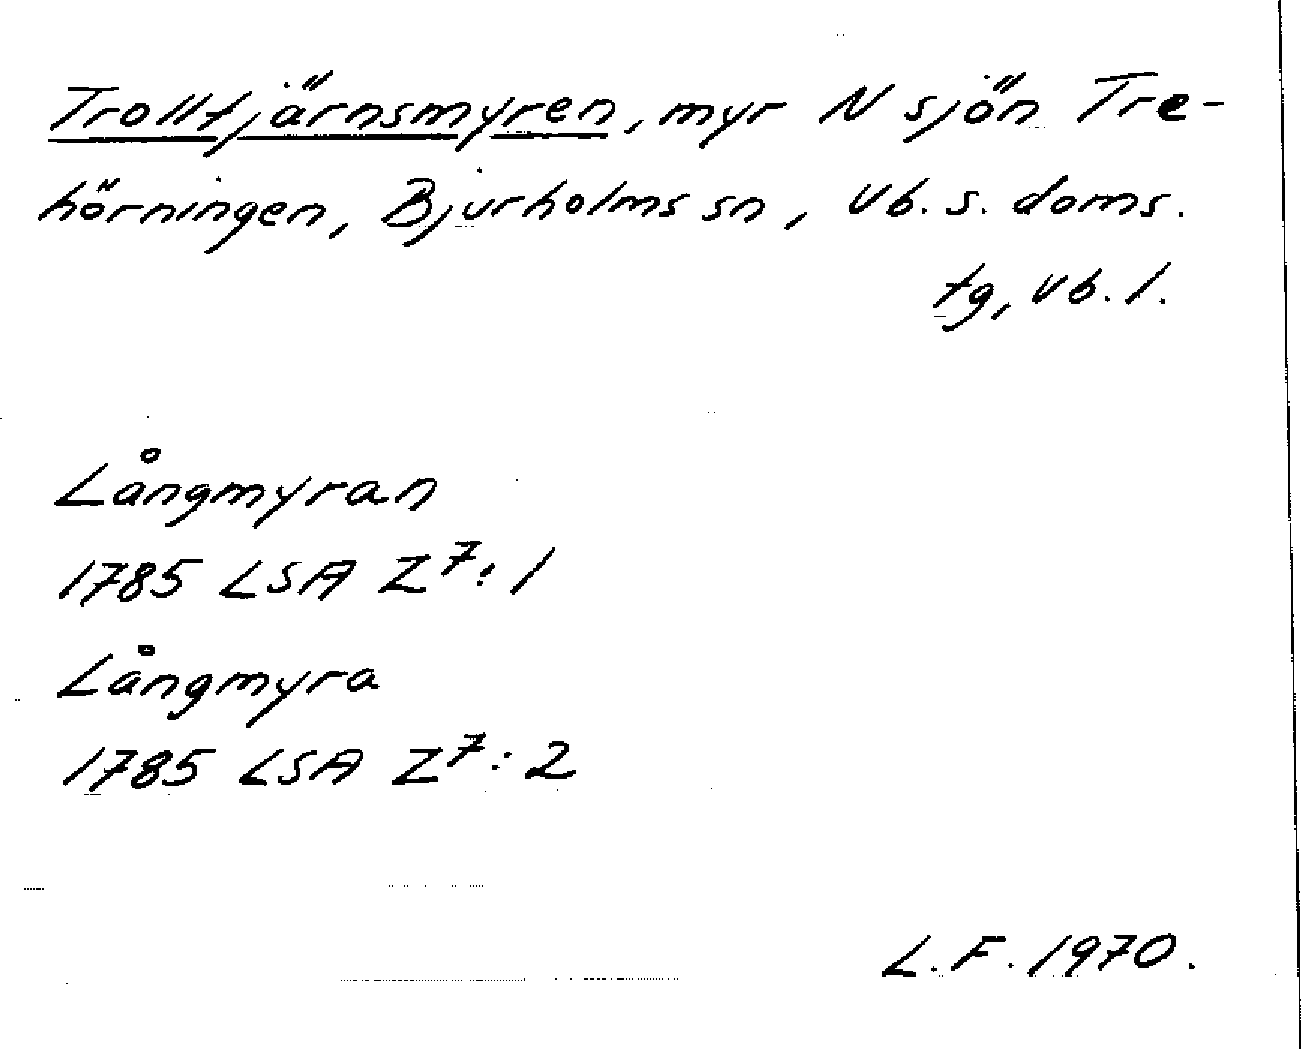 Trolltjärnsmyren, myr N sjön Tre-
hörningen, Bjurholms sn, Vb. s. doms.
tg, Vb. l.
Långmyran
1785 LSA Z7:1
Långmyra
1785 LSA Z7:2
L.F. 1970.